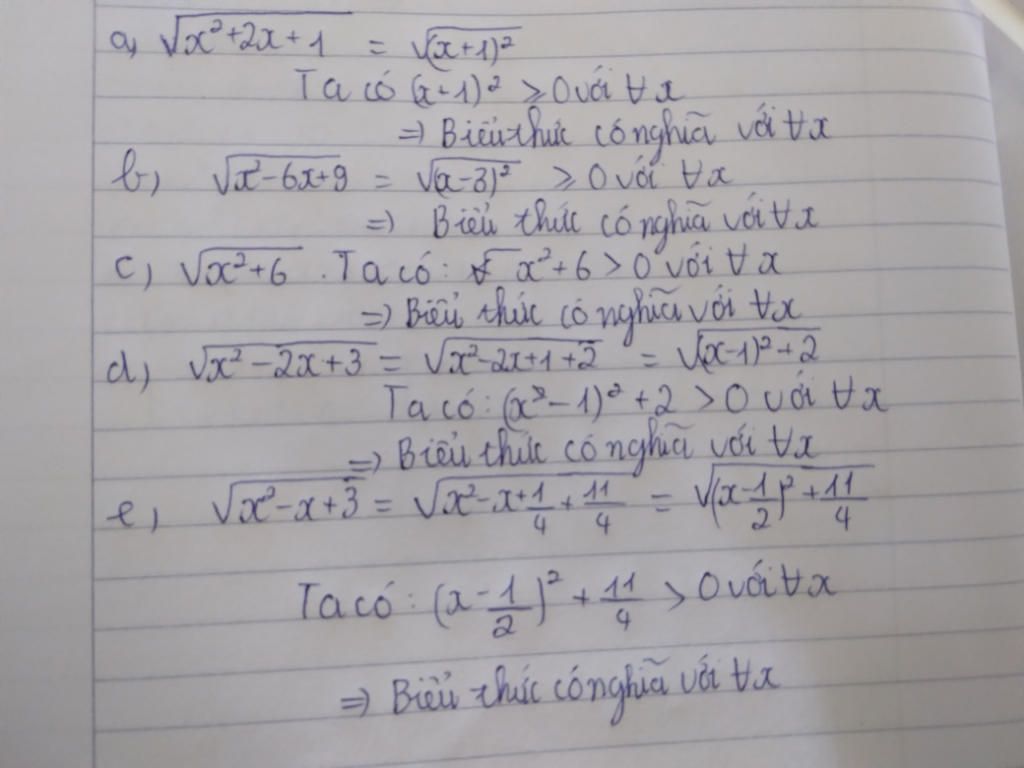 a, √x²+2x+1 = √(x+1)²
Ta có (x-1)² ≥ 0 với ∀x
=> Biểu thức có nghĩa với ∀x
b, √x²-6x+9 = √(x-3)² ≥ 0 với ∀x
=> Biểu thức có nghĩa với ∀x
c, √x²+6 . Ta có: x²+6 > 0 với ∀x
=> Biểu thức có nghĩa với ∀x
d, √x²-2x+3 = √x²-2x+1+2 = √(x-1)²+2
Ta có: (x²-1)²+2 > 0 với ∀x
=> Biểu thức có nghĩa với ∀x
e, √x²-x+3 = √x²-x+1/4+11/4 = √(x-1/2)²+11/4
Ta có: (x-1/2)²+11/4 > 0 với ∀x
=> Biểu thức có nghĩa với ∀x